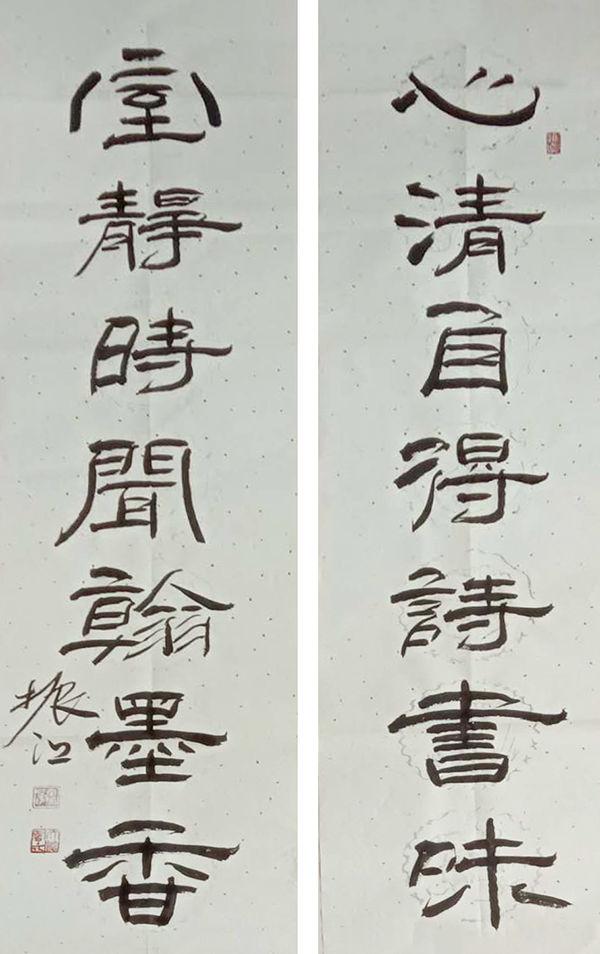 心清自得詩書味
室靜時聞翰墨香
振江